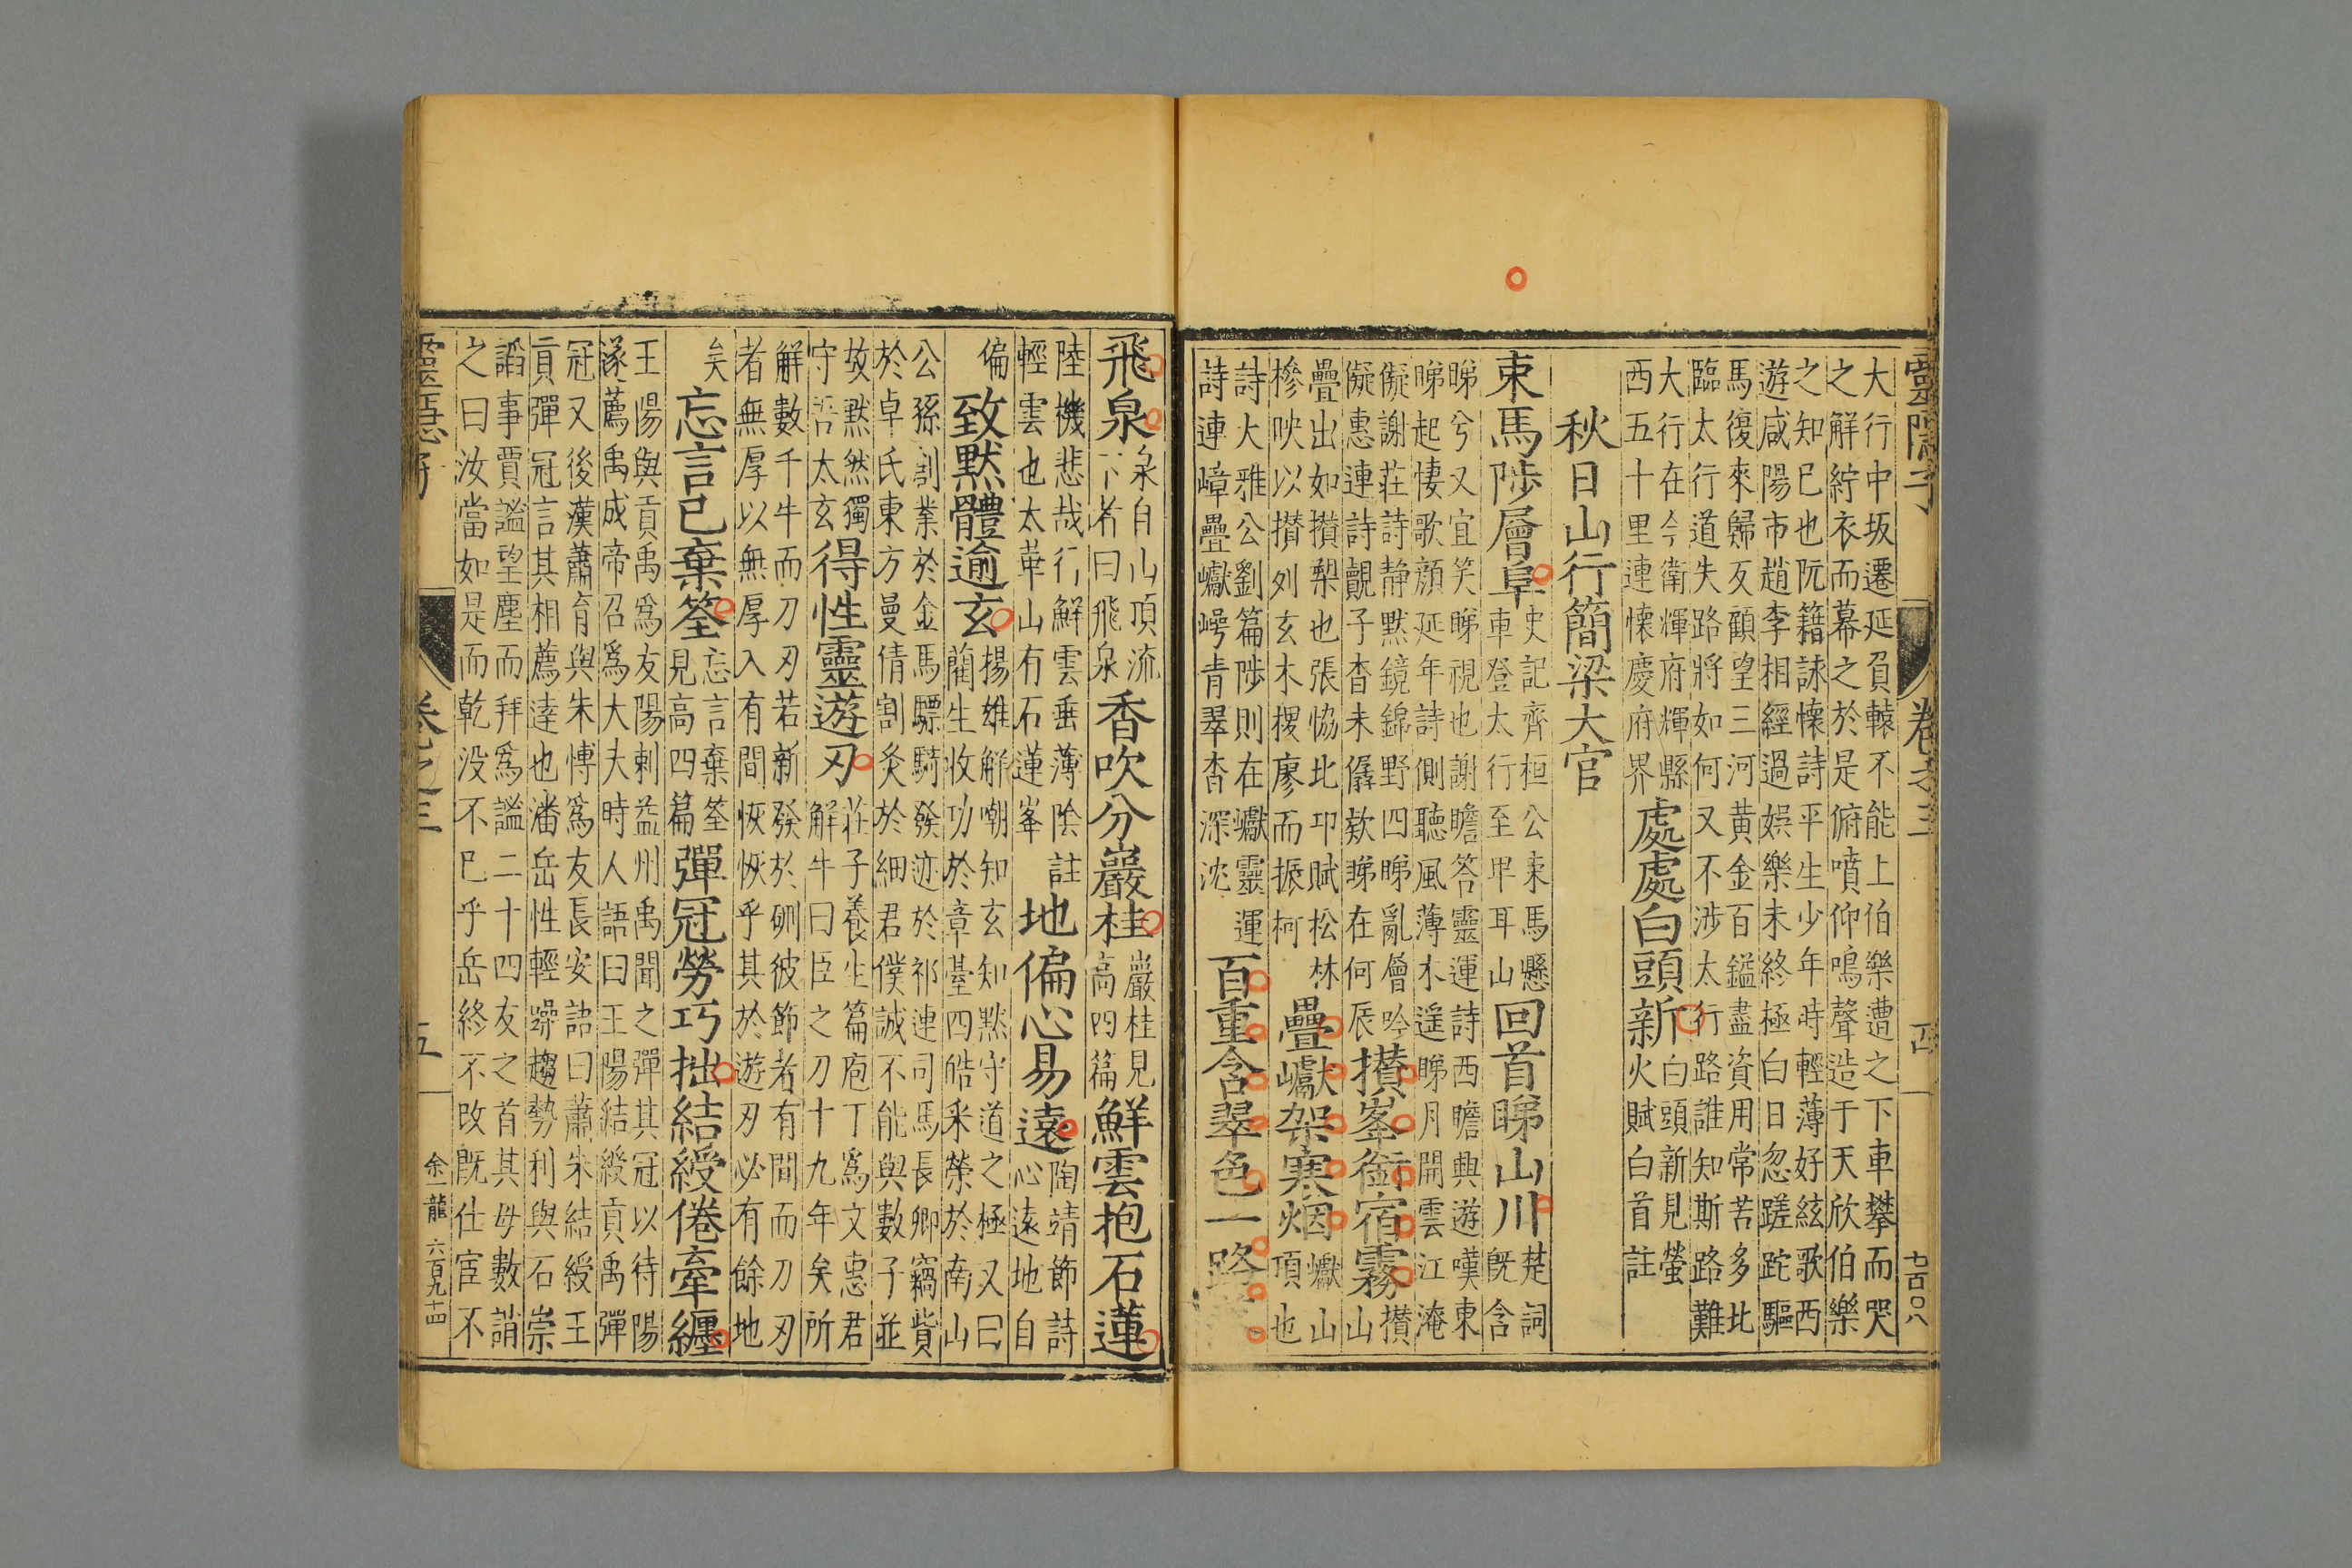 靈隱子 卷之三 四 七百〇八
大行中坂遷延負轅不能上伯樂遭之下車攀而哭
之解紵衣而幕之於是俯噴仰鳴聲造于天欣伯樂
之知已也阮籍詠懷詩平生少年時輕薄好絃歌西
遊咸陽市趙李相經過娛樂未終極白日忽蹉跎驅
馬復來歸反顧望三河黃金百鎰盡資用常苦多北
臨太行道失路將如何又不涉太行路誰知斯路難
大行在今衛輝府輝縣
西五十里連懷慶府界
處處白頭新
白頭新見螢
火賦白首註
秋日山行簡梁大官
束馬陟層阜
史記齊桓公束馬懸
車登太行至畢耳山
回首睇山川
楚詞
旣含
睇兮又宜笑睇視也謝瞻答靈運詩西瞻興遊嘆東
睇起悽歌顔延年詩側聽風薄木遙睇月開雲江淹
儗謝莊詩静默鏡錦野四睇亂層吟
儗惠連詩覿子杳未僝欵睇在何辰
攅峯銜宿霧
攅
山
疊出如攅棃也張恊北邙賦松林
槮映以攅列玄木搜廖而振柯
疊巘架寒烟
巘山
頂也
詩大雅公劉篇陟則在巘靈運
詩連嶂疊巘崿青翠杳深沈
百重含翠色一路
飛泉
泉自山頂流
下者曰飛泉
香吹分巖桂
巖桂見
高四篇
鮮雲抱石蓮
陸機悲哉行鮮雲垂薄陰註
輕雲也太華山有石蓮峯
地偏心易遠
陶靖節詩
心遠地自
偏
致黙體逾玄
揚雄解嘲知玄知黙守道之極又曰
藺生收功於章臺四皓采榮於南山
公孫創業於金馬驃騎發迹於祁連司馬長卿竊貲
於卓氏東方曼倩割炙於細君僕誠不能與數子並
故黙然獨
守吾太玄
得性靈遊刃
莊子養生篇庖丁爲文惠君
解牛曰臣之刀十九年矣所
解數千牛而刀刃若新發於硎彼節者有間而刀刃
者無厚以無厚入有間恢恢乎其於遊刃必有餘地
矣
忘言已棄筌
忘言棄筌
見高四篇
彈冠勞巧拙結綬倦牽纒
王陽與貢禹爲友陽刺益州禹聞之彈其冠以待陽
遂薦禹成帝召爲大夫時人語曰王陽結綬貢禹彈
冠又後漢蕭育與朱愽爲友長安語曰蕭朱結綬王
貢彈冠言其相薦達也潘岳性輕躁趨勢利與石崇
謟事賈謐望塵而拜爲謐二十四友之首其母數誚
之曰汝當如是而乾没不巳乎岳終不改旣仕宦不
卷之三 五 余一龍 六百九十四